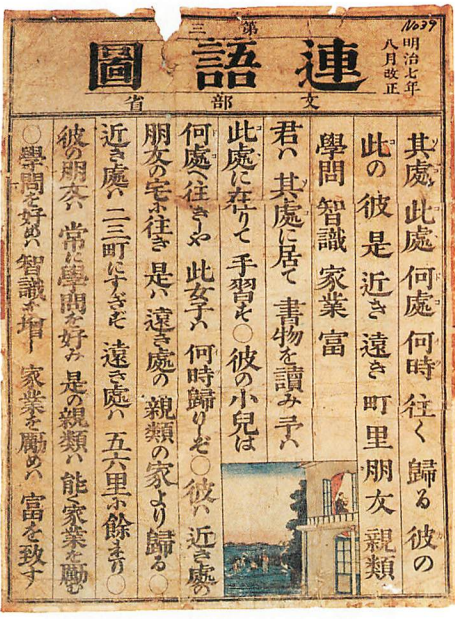 No39
明治七年
八月改正
第三
連語圖
文部省
其處 此處 何處 何時 往く 歸る 彼の
此の 彼 是 近き 遠き 町 里 朋友 親類
學問 智識 家業 富
君ハ 其處に居て 書物を讀み 予ハ
此處に在りて 手習す○彼の小兒は
何處へ往きしや 此女子ハ 何時歸りしぞ○彼ハ 近き處の
朋友の宅に往き 是ハ 遠き處の 親類の家より歸る○
近き處ハ 二三町にすぎず 遠き處ハ 五六里に餘まり○
彼の朋友ハ 常に學問を好み 是の親類ハ 能く家業を勵む
○學問を好めハ 智識を増し 家業を勵めハ 富を致す